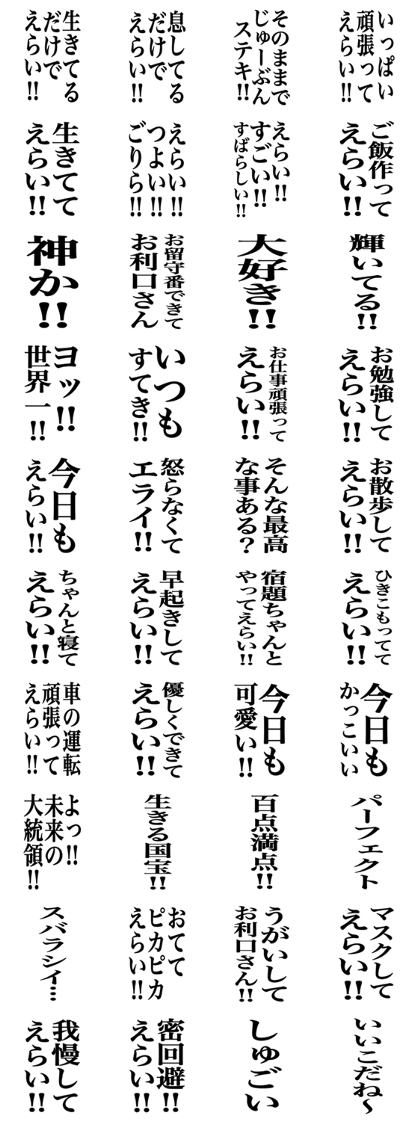 生きてる
だけで
えらい!!
息してる
だけで
えらい!!
そのままで
じゅーぶん
ステキ!!
いっぱい
頑張って
えらい!!
生きてて
えらい!!
えらい!!
つよい!!
ごりら!!
えらい!!
すごい!!
すばらしい!!
ご飯作って
えらい!!
神か!!
お留守番できて
お利口さん
大好き!!
輝いてる!!
ヨッ!!
世界一!!
いつも
すてき!!
お仕事頑張って
えらい!!
お勉強して
えらい!!
今日も
えらい!!
怒らなくて
エライ!!
そんな最高
な事ある?
お散歩して
えらい!!
ちゃんと寝て
えらい!!
早起きして
えらい!!
宿題ちゃんと
やってえらい!!
ひきこもってて
えらい!!
車の運転
頑張って
えらい!!
優しくできて
えらい!!
今日も
可愛い!!
今日も
かっこいい
よっ!!
未来の
大統領!!
生きる国宝!!
百点満点!!
パーフェクト
スバラシイ…
おてて
ピカピカ
えらい!!
うがいして
お利口さん!!
マスクして
えらい!!
我慢して
えらい!!
密回避!!
えらい!!
しゅごい
いいこだね~